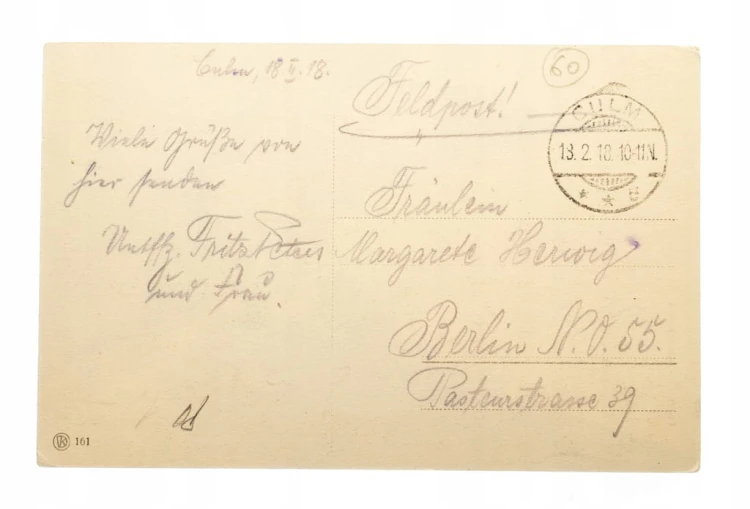 Culm, 18 II. 18.
60
Feldpost!
CULM
18. 2. 18. 10-11 V.
* * B
Viele Grüße von
hier senden
Untffz. Fritz Peters
und Frau.
Fräulein
Margarete Herwig
Berlin N.O. 55.
Pasteurstrasse 39
161